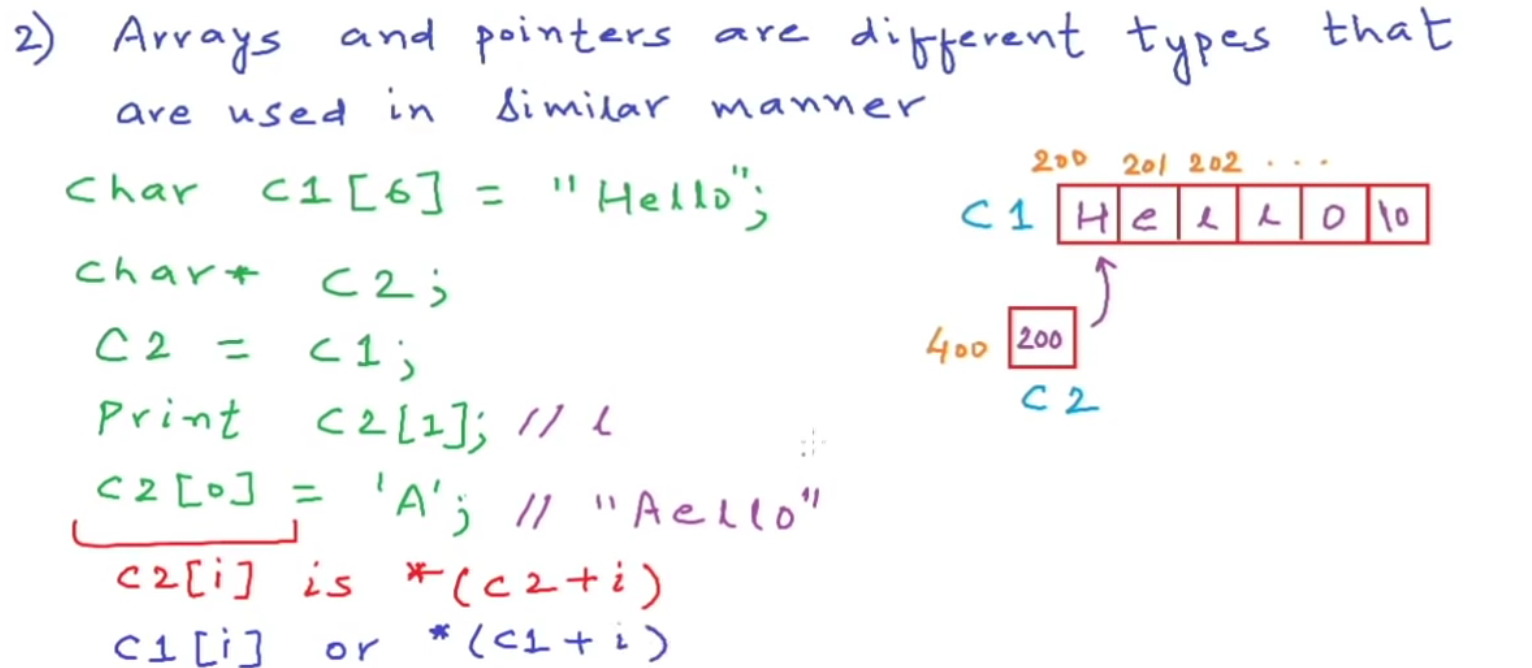 2) Arrays and pointers are different types that
are used in similar manner
Char C1[6] = "Hello";
Char* C2;
C2 = C1;
Print C2[1]; // l
C2[0] = 'A'; // "Aello"
C2[i] is *(C2+i)
C1[i] or *(C1+i)
200 201 202 ...
C1 H e l l o \0
400 200
C2